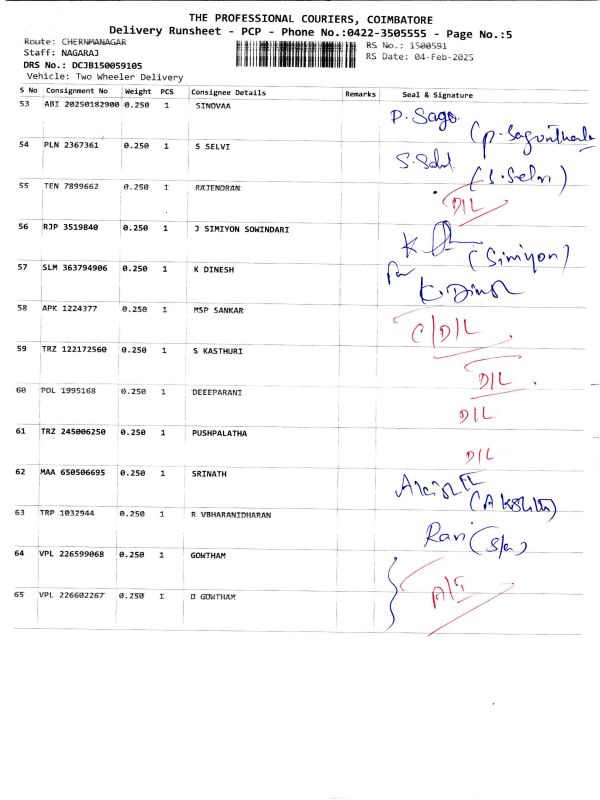 THE PROFESSIONAL COURIERS, COIMBATORE
Delivery Runsheet - PCP - Phone No.:0422-3505555 - Page No.:5
Route: CHERNMANAGAR
RS No.: 1500591
Staff: NAGARAJ
RS Date: 04-Feb-2025
DRS No.: DCJB150059105
Vehicle: Two Wheeler Delivery
S No Consignment No Weight PCS Consignee Details Remarks Seal & Signature
53 ABI 20250182900 0.250 1 SINOVAA P. Sago
54 PLN 2367361 0.250 1 S SELVI
(S. Selvi)
55 TEN 7899662 0.250 1 RAJENDRAN D/L
56 RJP 3519840 0.250 1 J SIMIYON SOWINDARI K (Simiyon)
57 SLM 363794906 0.250 1 K DINESH K. Dinesh
58 APK 1224377 0.250 1 MSP SANKAR C/D/L
59 TRZ 122172560 0.250 1 S KASTHURI D/L
60 POL 1995168 0.250 1 DEEEPARANI D/L
61 TRZ 245006250 0.250 1 PUSHPALATHA D/L
62 MAA 650506695 0.250 1 SRINATH
63 TRP 1032944 0.250 1 R VBHARANIDHARAN Ravi (S/a)
64 VPL 226599068 0.250 1 GOWTHAM A/T
65 VPL 226602267 0.250 1 D GOWTHAM